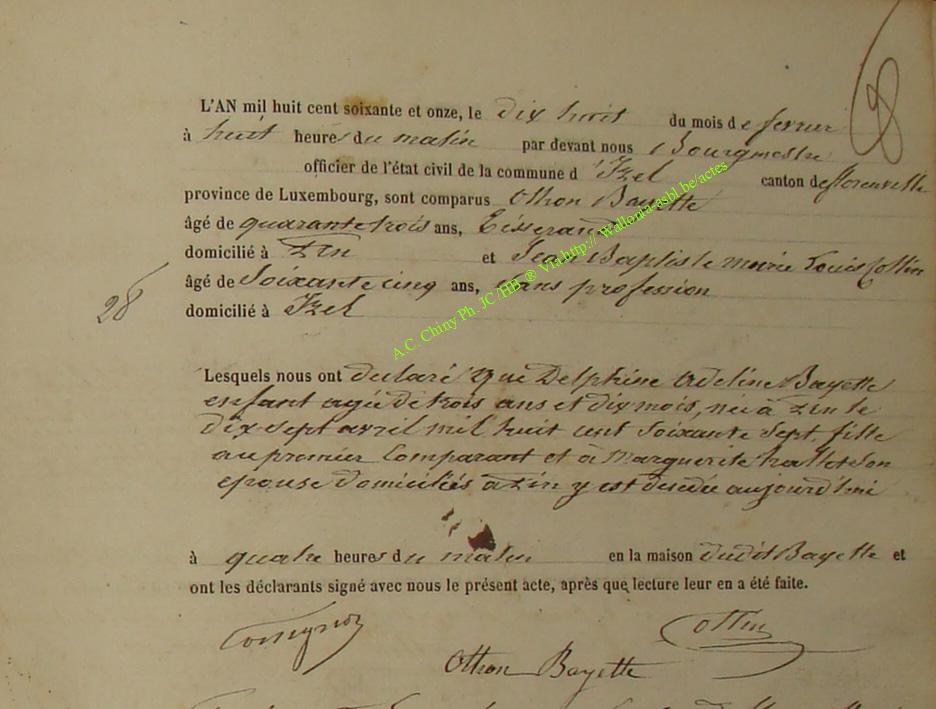 8
L'AN mil huit cent soixante et onze, le dix huit du mois de fevrier
à huit heures du matin par devant nous Bourgmestre
officier de l'état civil de la commune d'Izel canton de florenville
province de Luxembourg, sont comparus Othon Bayette
âgé de quarante trois ans, Tisserand
domicilié à Zin et Jean Baptiste marie Louis Collin
âgé de Soixante cinq ans, sans profession
28
domicilié à Izel
A.C. Chiny Ph. JC /HB ® Via http:// Wallonia-asbl.be/actes
Lesquels nous ont declaré que Delphine Adeline Bayette
enfant agée de trois ans et dix mois, née à Zin le
dix sept avril mil huit cent soixante sept, fille
au premier Comparant et à Marguerite son
epouse domiciliés à Zin y est decedée aujourd'hui
à quatre heures du matin en la maison dudit Bayette et
ont les déclarants signé avec nous le présent acte, après que lecture leur en a été faite.
Collin
Othon Bayette